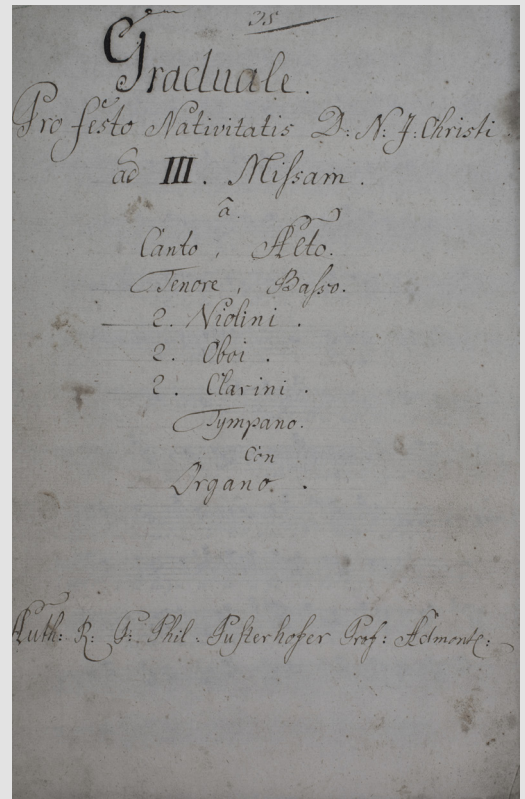 35
Graduale.
Pro festo Nativitatis D: N: J: Christi.
ad III. Missam.
â.
Canto, Alto.
Tenore, Basso.
2. Violini.
2. Oboi.
2. Clarini.
Tympano.
Con
Organo.
Auth: R: P: Phil. Pusterhoffer Prof: Admont: